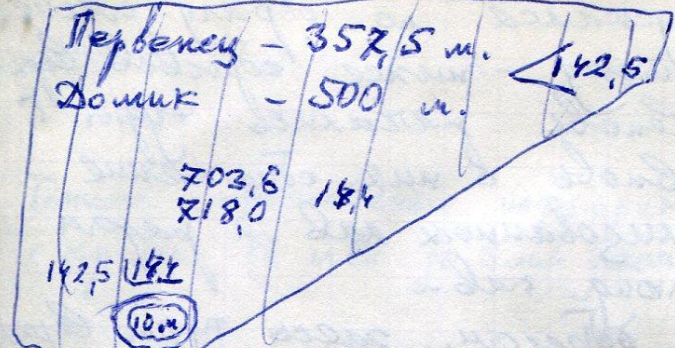 Первенец - 357,5 м.
142,5
Домик - 500 м.
703,6
718,0
142,5
10 м